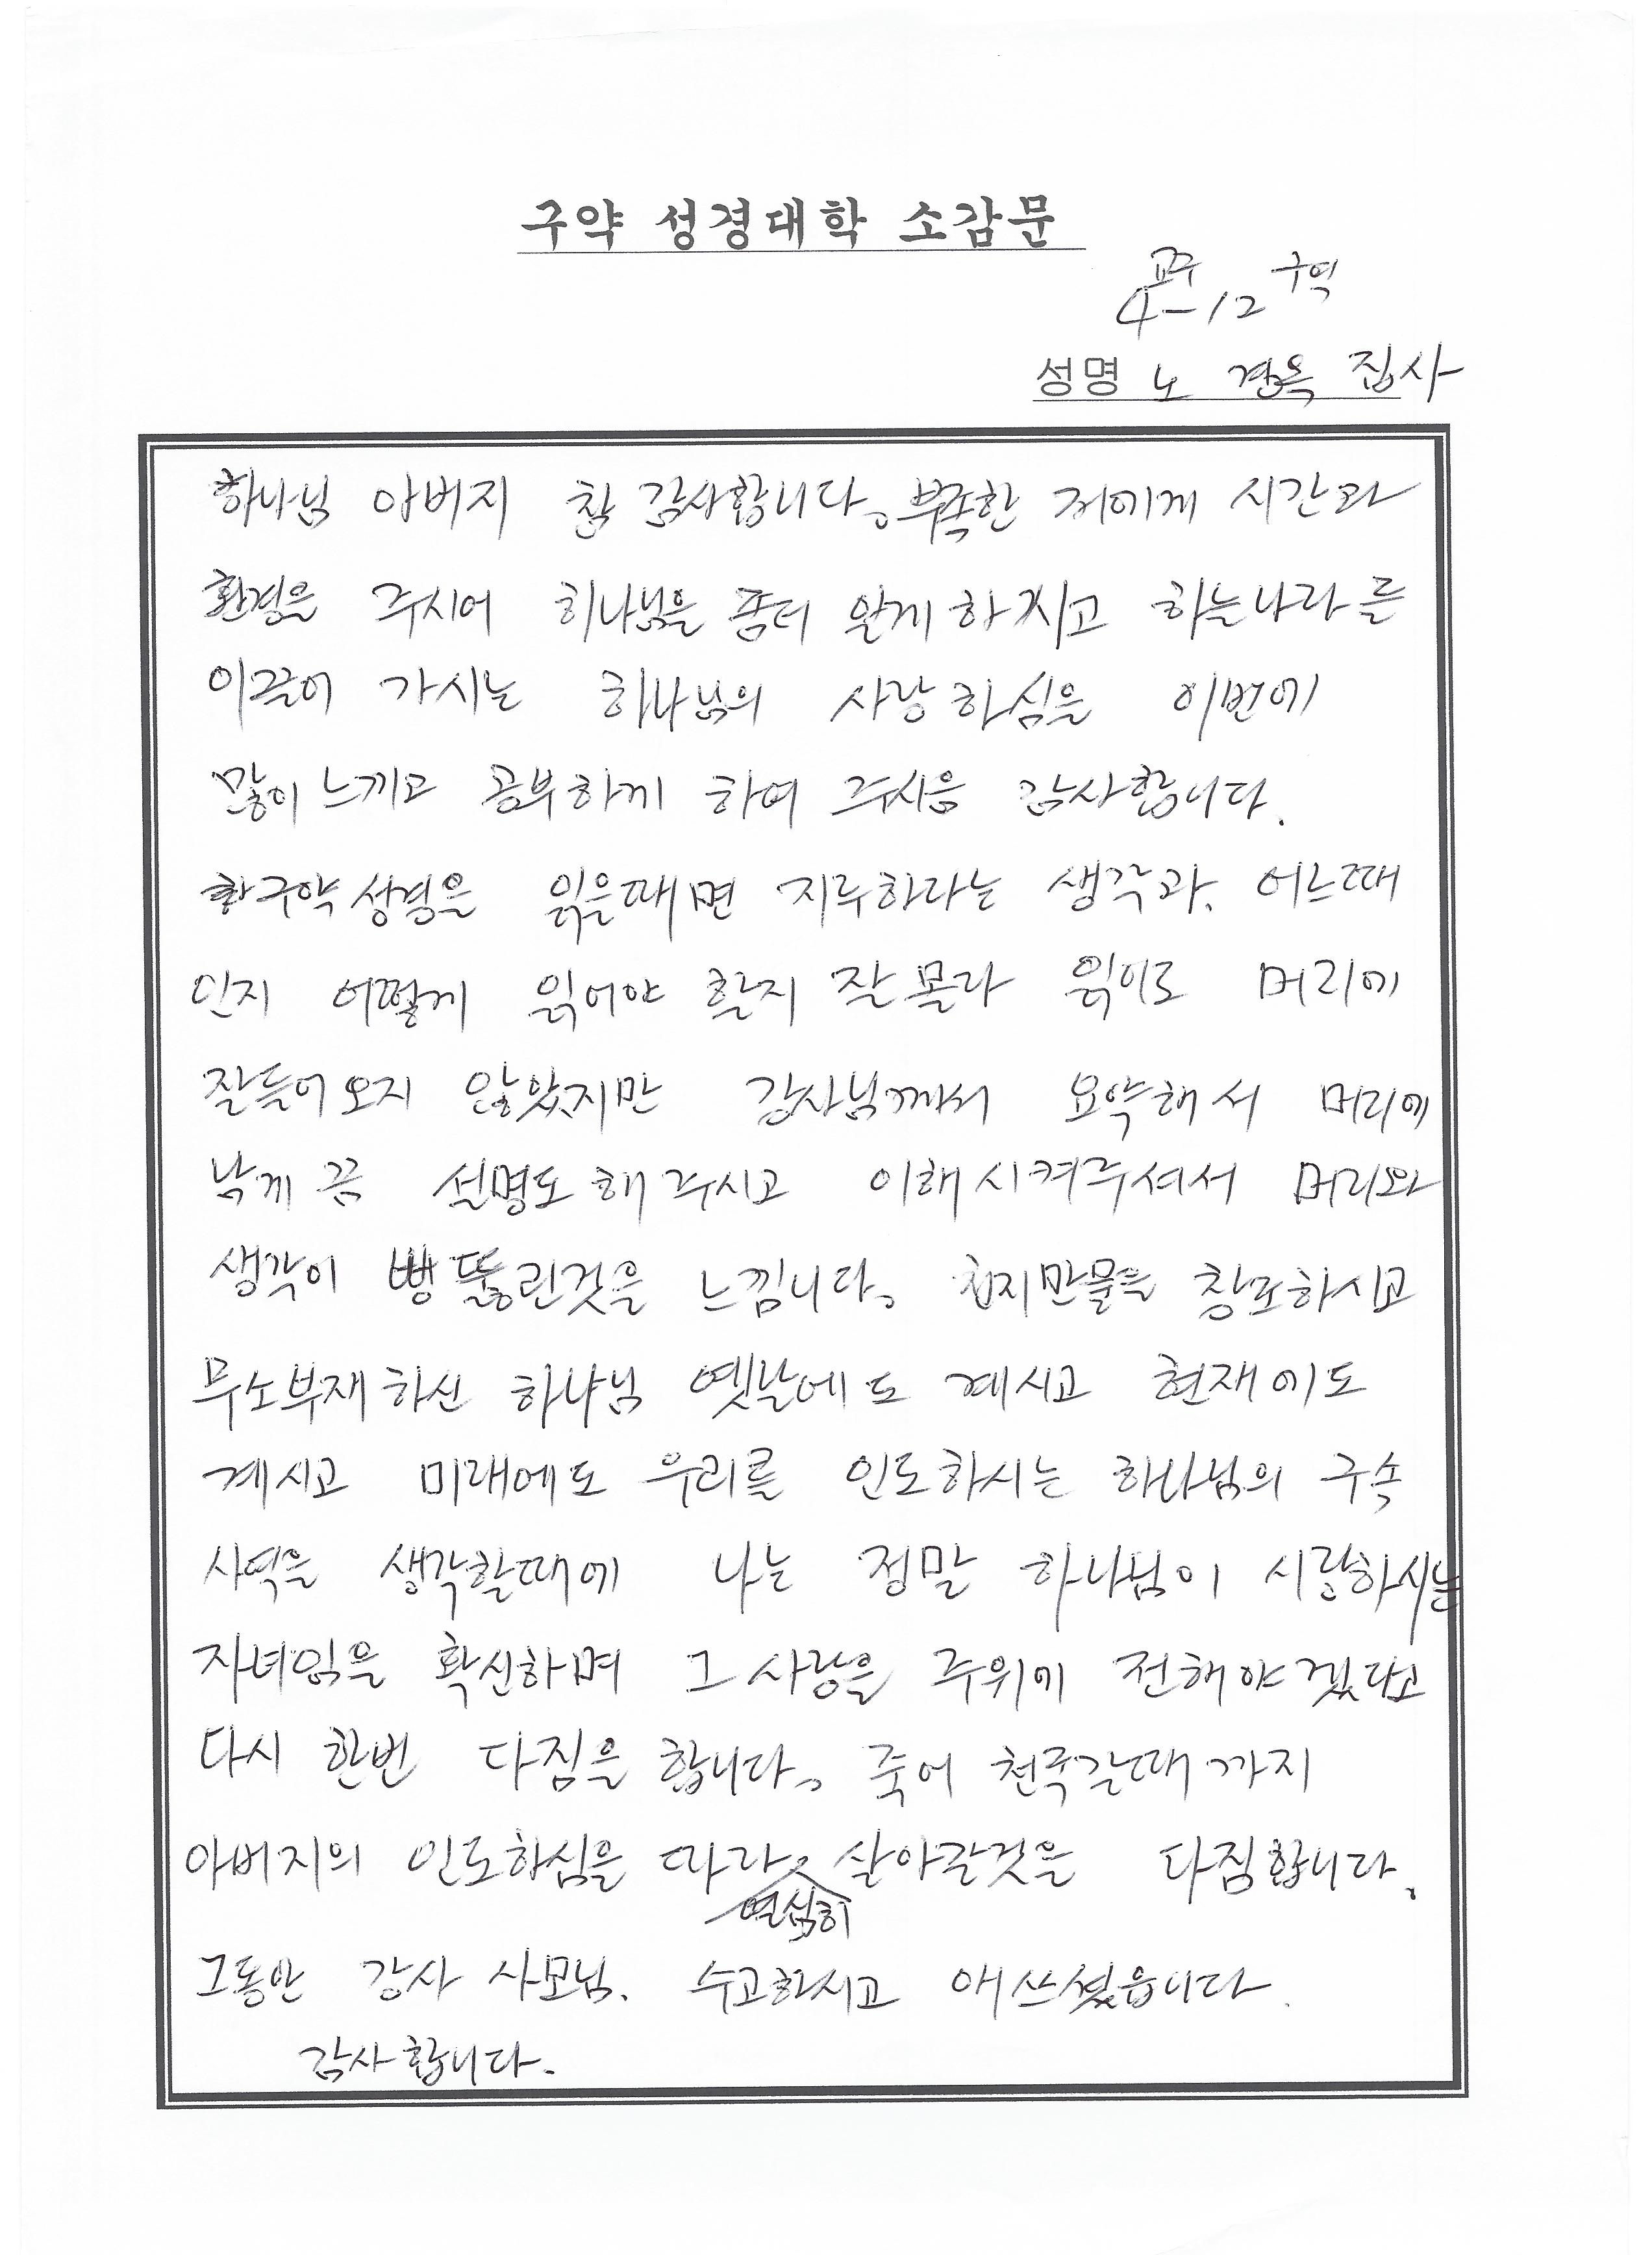 구약 성경대학 소감문
교구 구역
4-12
성명 노 경옥 집사
하나님 아버지 참 감사합니다. 부족한 저에게 시간과
환경을 주시어 하나님을 좀더 알게하시고 하늘나라를
이끌어 가시는 하나님의 사랑하심을 이번에
많이 느끼고 공부하게 하여 주시음 감사합니다.
구약성경을 읽을때면 지루하다는 생각과. 어느때
인지 어떻게 읽어야 할지 잘몰라 읽어도 머리에
잘들어오지 않았지만 강사님께서 요약해서 머리에
낙게끔 설명도해주시고 이해시켜주셔서 머리와
생각이 뻥뚫린것을 느낍니다. 천지만물을 창조하시고
무소부재하신 하나님 옛날에도 계시고 현재에도
계시고 미래에도 우리를 인도하시는 하나님의 구속
사역을 생각할때에 나는 정말 하나님이 사랑하시는
자녀임을 확신하며 그사랑을 주위에 전해야겠다고
다시 한번 다짐을 합니다. 죽어 천국갈때까지
아버지의 인도하심을 따라 열심히 살아갈것을 다짐합니다.
그동안 강사 사모님. 수고하시고 애쓰셨읍니다.
감사합니다.